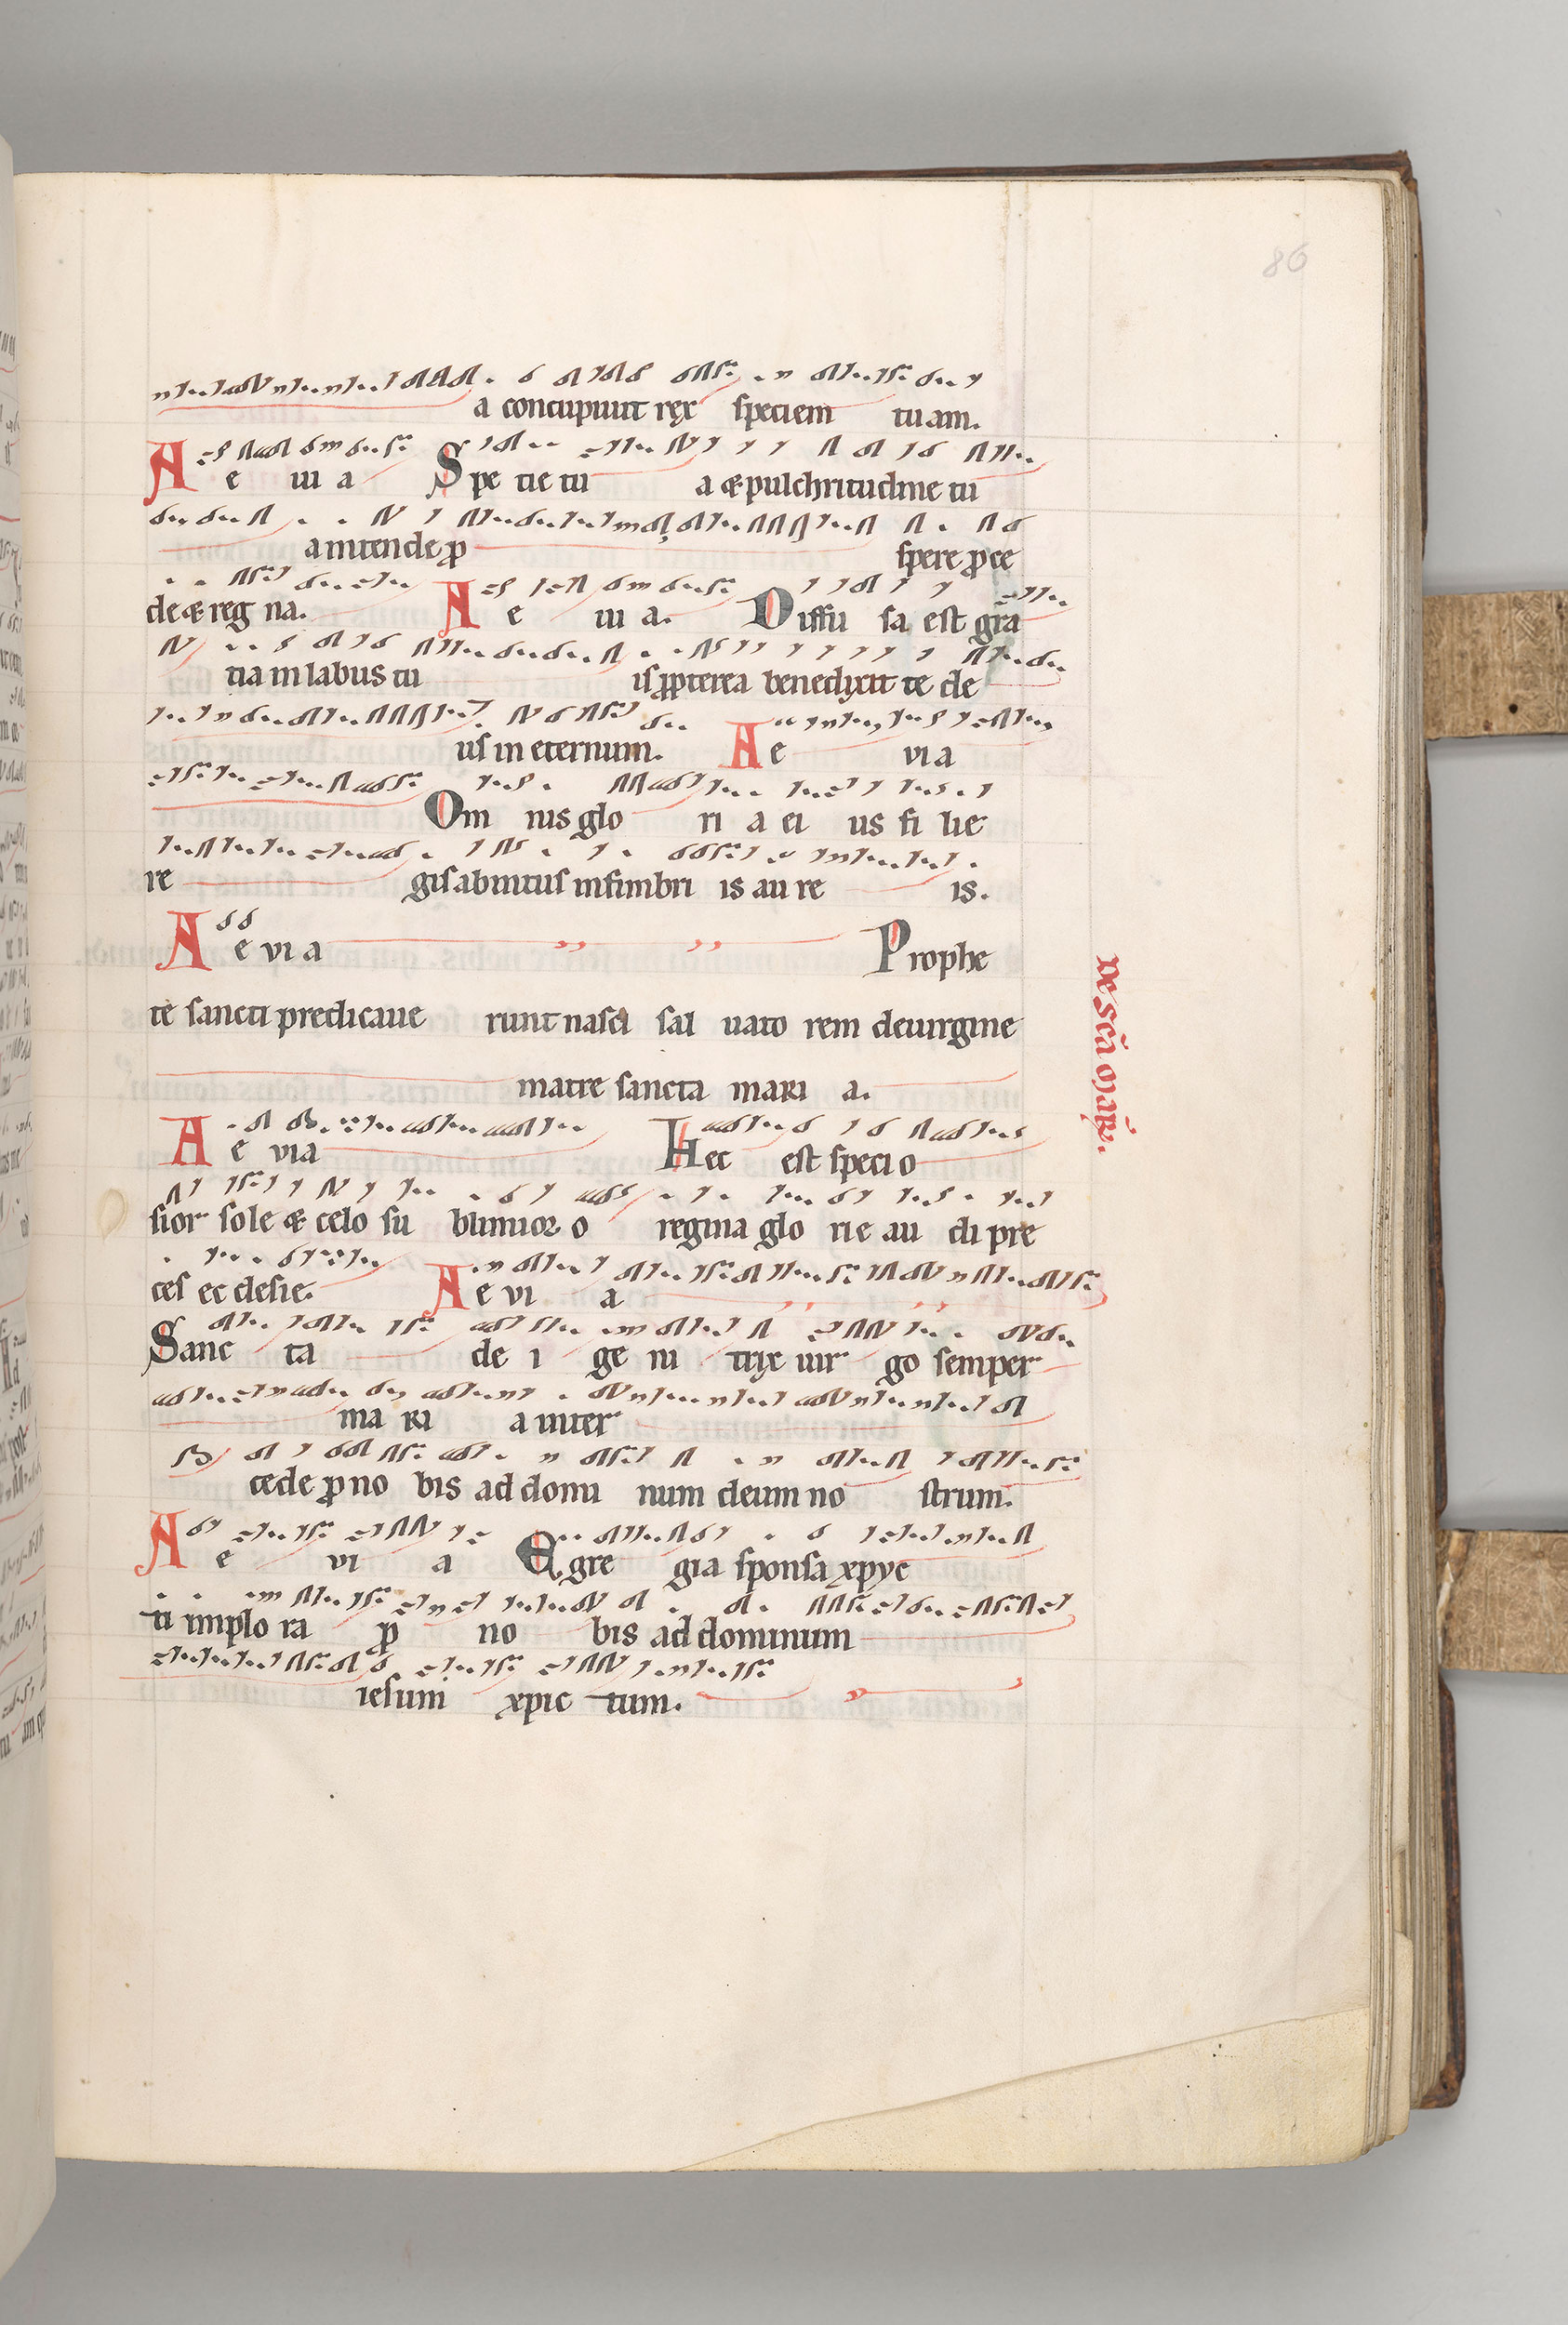 86
a concupiuit rex speciem tuam.
A e uia Spe tie tu a & pulchritudine tu
a intende p spere p ce
de & reg na. A e uia. Diffu sa est gra
tia in labiis tu is ppterea benedixit te de
us in eternum. A e via
Om nis glo ri a ei us fi lie
re gis ab intus in fimbri is au re is.
A e via Prophe
te sancti predicaue runt nasci sal uato rem de uirgine
matre sancta mari a.
A e via Hec est speci o
sior sole & celo su blimior o regina glo rie au di pre
ces ec clesie. A e vi a
Sanc ta de i ge ni trix uir go semper
ma ri a inter
cede p no bis ad domi num deum no strum.
A e vi a Egre gia sponsa xpyc
ti implo ra p no bis ad dominum
iesum xpic tum.
De scā Marā.